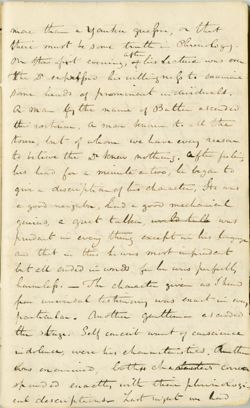 more than a Yankee guesser, or that
there must be some truth in Phrenology.
On the first evening, after his Lecture was over
the Dr expressed his willingness to examine
some heads of prominent individuals.
A man by the name of Butler ascended
the rostrum. A man known to all the
town, but of whom we have every reason
to believe the Dr knew nothing. After feeling
his head for a minute or two, he began to
give a description of his character, He was
a good neighbor, had a good mechanical
genius, a great talker,
prudent in every thing except in his language
and that in this he was most imprudent
but all ended in words for he was perfectly
harmless. — The character given as I heard
from universal testimony was exact in every
particular. Another gentleman ascended
the stage. Self conceit want of conscience
indolence, were his characteristics. Another
was examined, both
responded exactly with their phrenologi-
cal descriptions — Last night we had